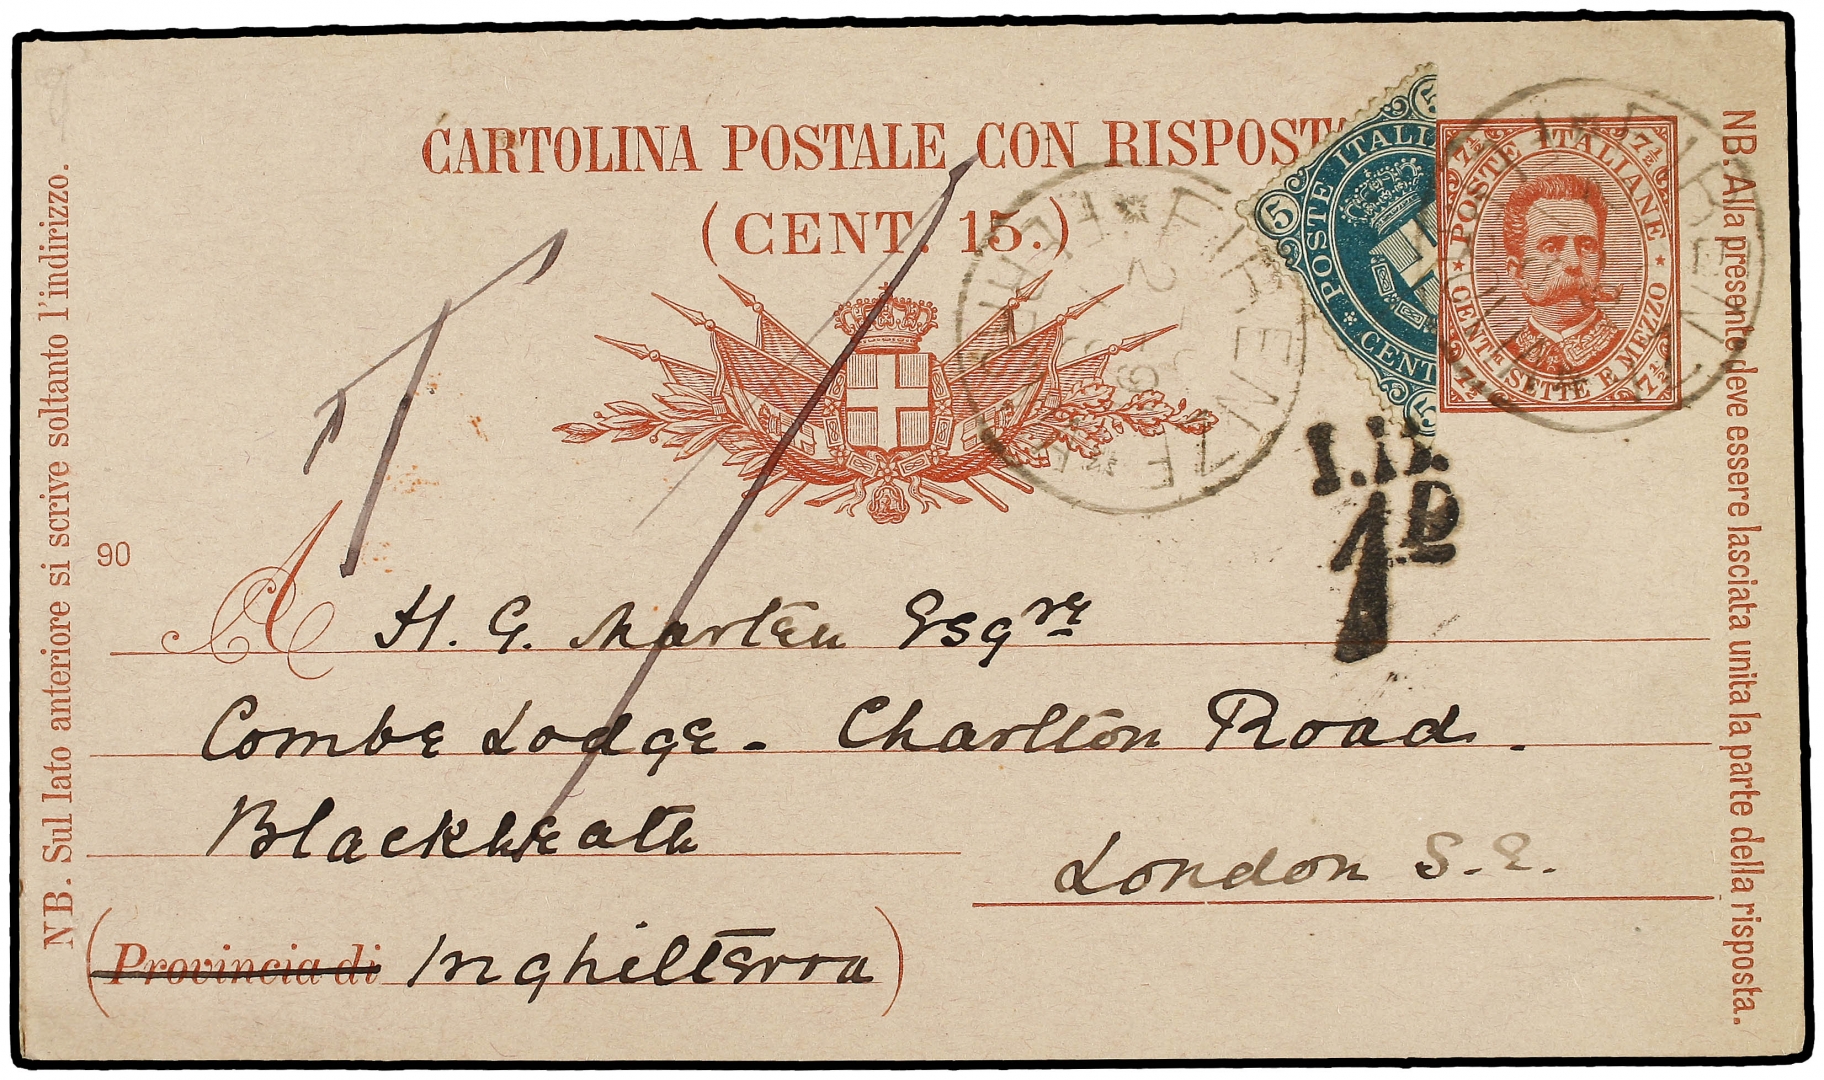 CARTOLINA POSTALE CON RISPOST
(CENT. 15.)
5
5
5
POSTE ITALI
CENT
POSTE ITALIANE
CENT.MI SETTE E MEZZO
7½
7½
7½
7½
FIRENZE
FIRENZE
T
I.H.
1D
90
A H. G. Marten Esqre
Combe Lodge - Charlton Road.
Blackheath
London S.E.
(Provincia di Inghilterra)
NB. Sul lato anteriore si scrive soltanto l'indirizzo.
NB. Alla presente deve essere lasciata unita la parte della risposta.